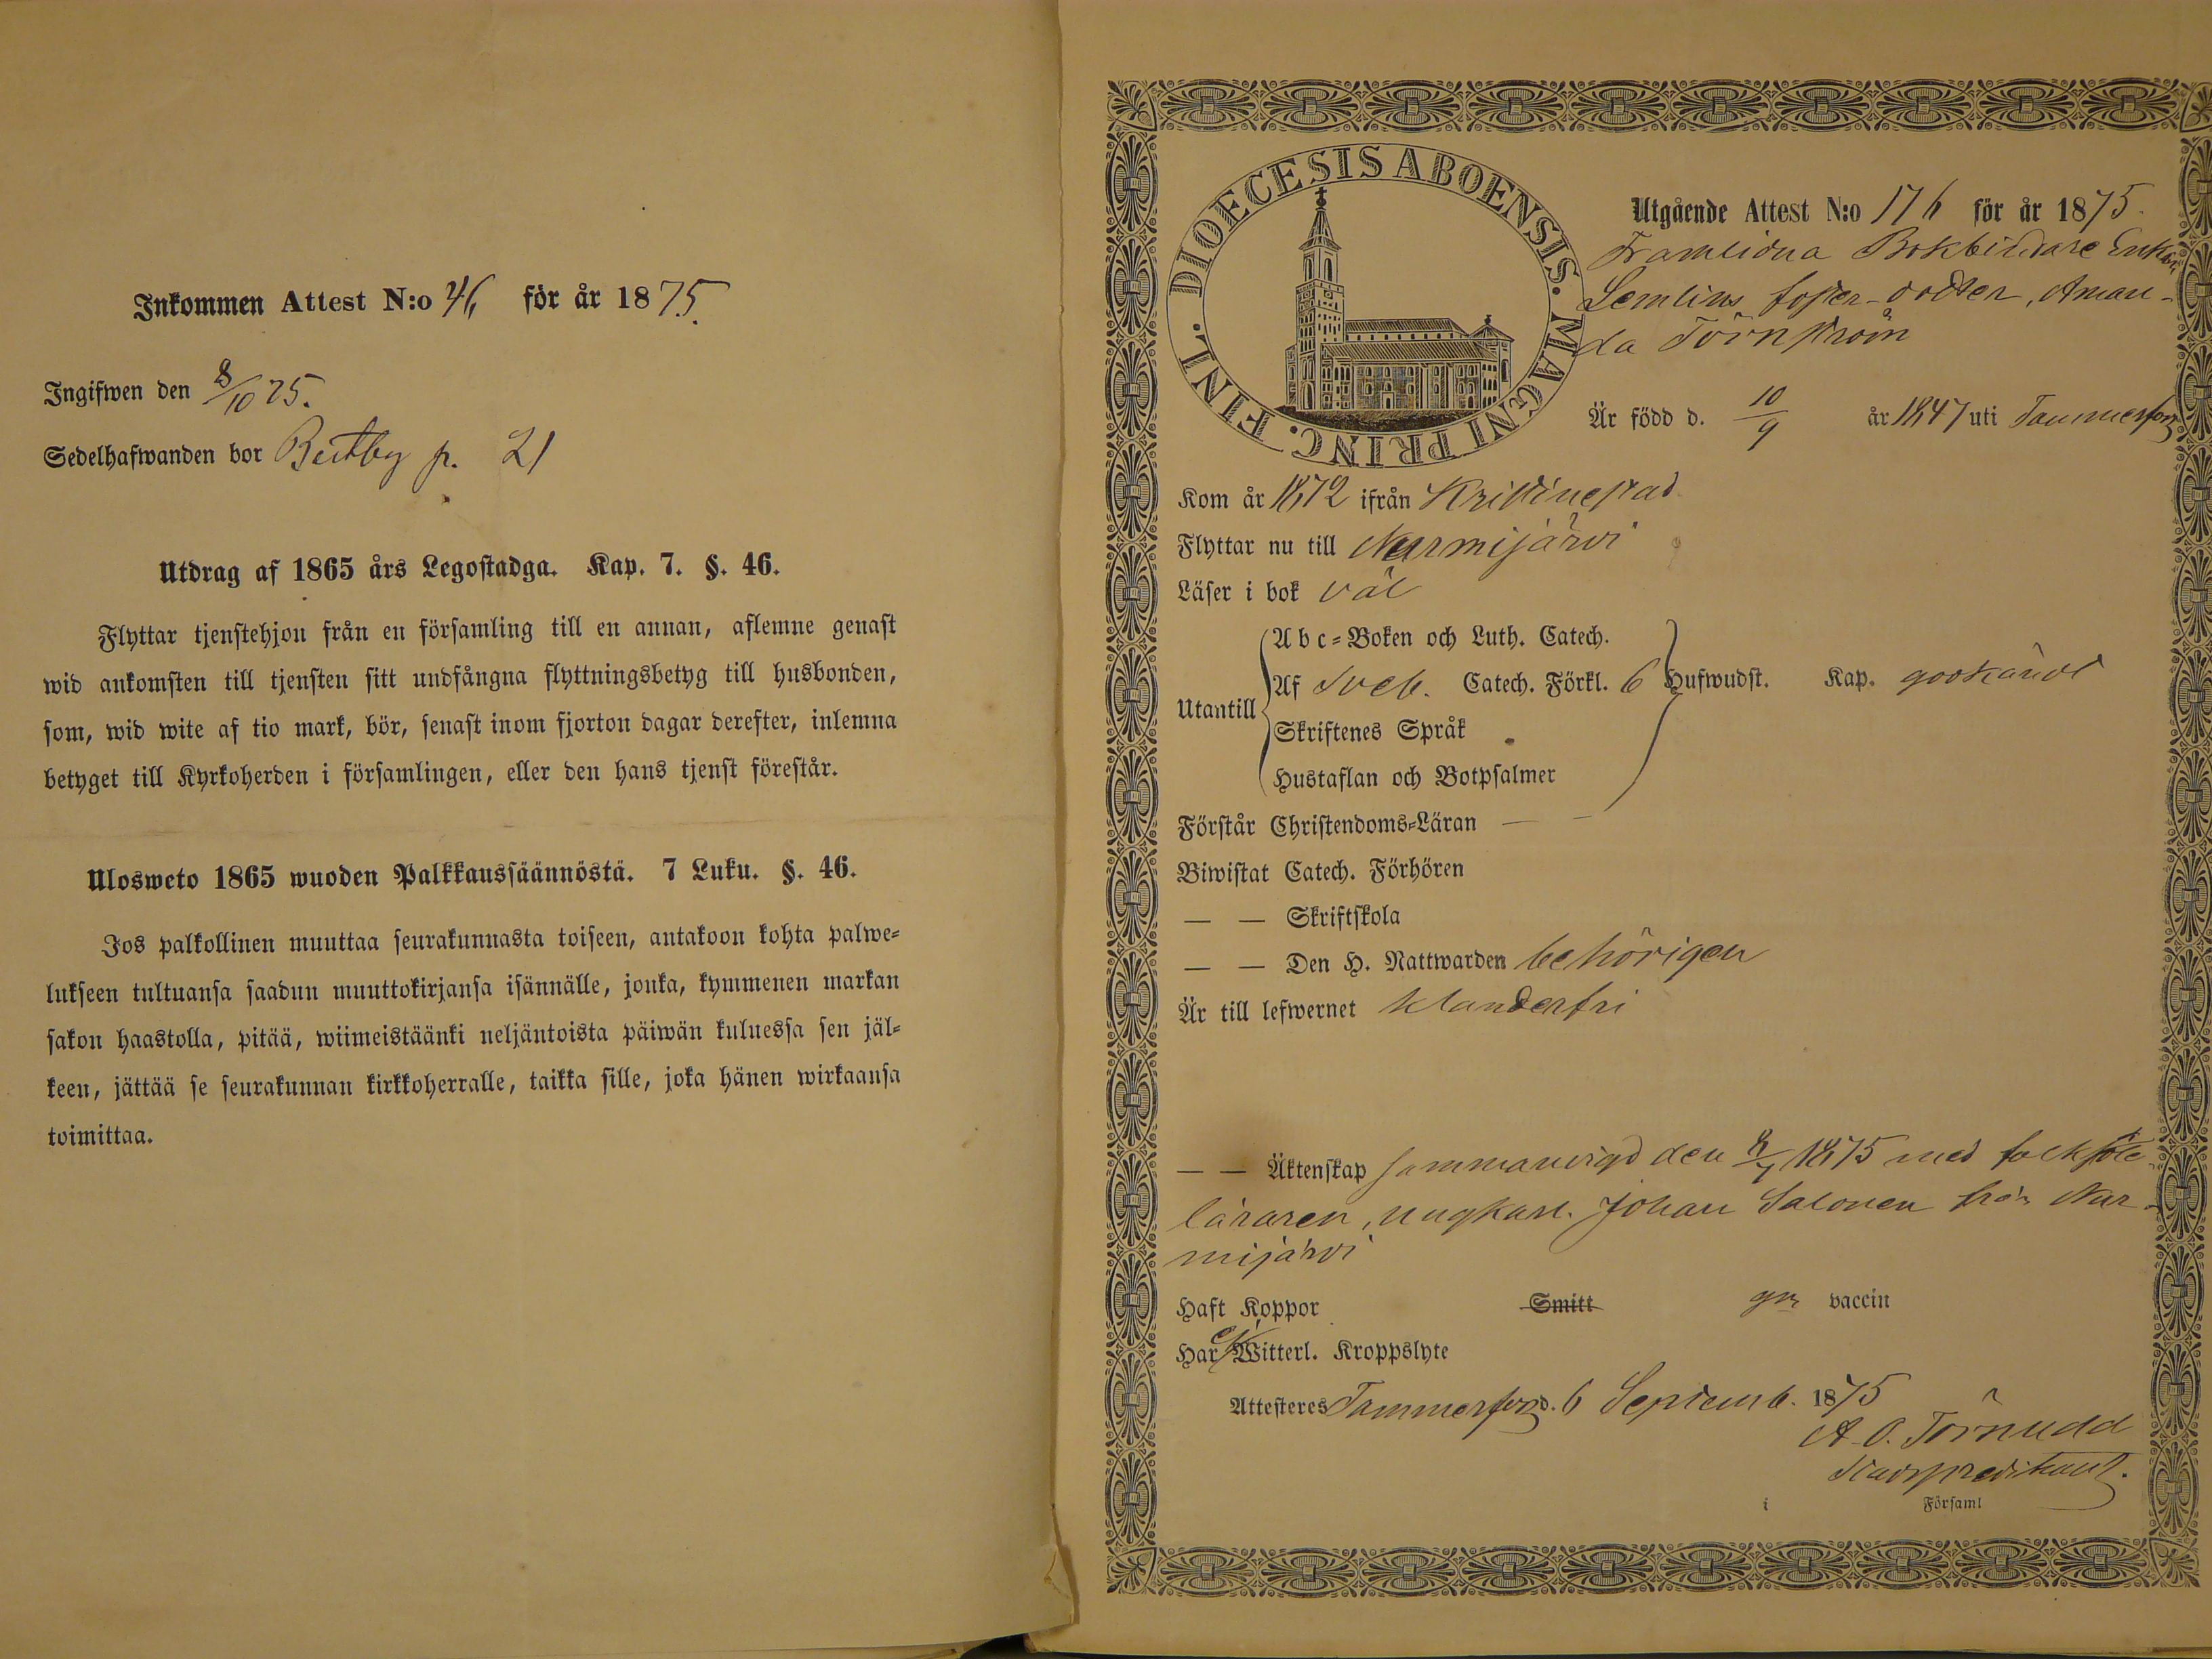 Inkommen Attest N:o 46 för år 1875.
Ingifwen den 8/10 75.
Sedelhafwanden bor p. 21
Utdrag af 1865 års Legostadga. Kap. 7. §. 46.
Flyttar tjenstehjon från en församling till en annan, aflemne genast
wid ankomsten till tjensten sitt undfångna flyttningsbetyg till husbonden,
som, wid wite af tio mark, bör, senast inom fjorton dagar derefter, inlemna
betyget till Kyrkoherden i församlingen, eller den hans tjenst förestår.
Ulosweto 1865 wuoden Palkkaussäännöstä. 7 Luku. §. 46.
Jos palkollinen muuttaa seurakunnasta toiseen, antakoon kohta palwe-
lukseen tultuansa saadun muuttokirjansa isännälle, jonka, kymmenen markan
sakon haastolla, pitää, wiimeistäänki neljäntoista päiwän kuluessa sen jäl-
keen, jättää se seurakunnan kirkkoherralle, taikka sille, joka hänen wirkaansa
toimittaa.
DIOECESIS ABOENSIS. MAGNI PRINC. FINL.
Utgående Attest N:o 176 för år 1875.
Framlidna Bokbindare Enkan
Lemlins foster-dotter, Aman-
da Törnström
Är född d. 10/9 år 1847 uti Tammerfors
Kom år 1872 ifrån Kristinestad
Flyttar nu till Nurmijärvi
Läser i bok väl
Utantill
Abc-Boken och Luth. Catech.
Af Sveb. Catech. Förkl. 6 Hufwudst. Kap. godkändt
Skriftenes Språk
Hustaflan och Botpsalmer
Förstår Christendoms-Läran — —
Biwistat Catech. Förhören
— — Skriftskola
— — Den H. Nattwarden behörigen
Är till lefwernet klanderfri
— — Äktenskap sammanvigd den 1875 med folkskole-
läraren, ungkarl. Johan Salonen från Nur-
mijärvi
Haft Koppor Smitt gm vaccin
Har ej Witterl. Kroppslyte
Attesteres Tammerfors d. 6 Septemb. 1875
A. O. Törnudd
Stadspredikant.
i Församl